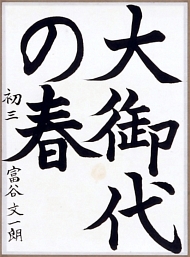 大御代
の春
初三 富谷文一朗